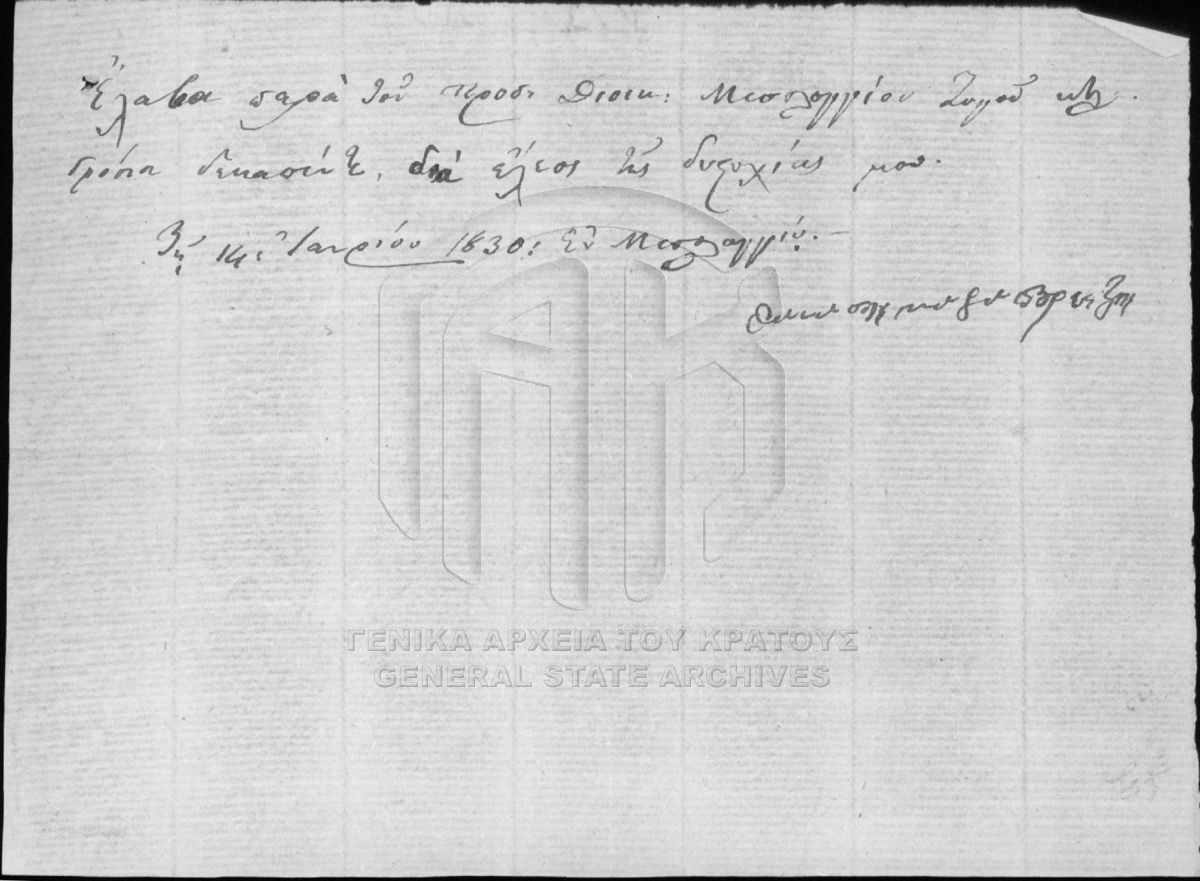 Ἔλαβα παρὰ τοῦ προσ. Διοικ: Μεσολογγίου Ζυγοῦ κλ.
γρόσια δεκαπέντε, διὰ ἔλεος τῆς δυστυχίας μου.
Τῇ 14: Ἰανουαρίου 1830: Ἐν Μεσολογγίῳ.
ΓΕΝΙΚΑ ΑΡΧΕΙΑ ΤΟΥ ΚΡΑΤΟΥΣ
GENERAL STATE ARCHIVES